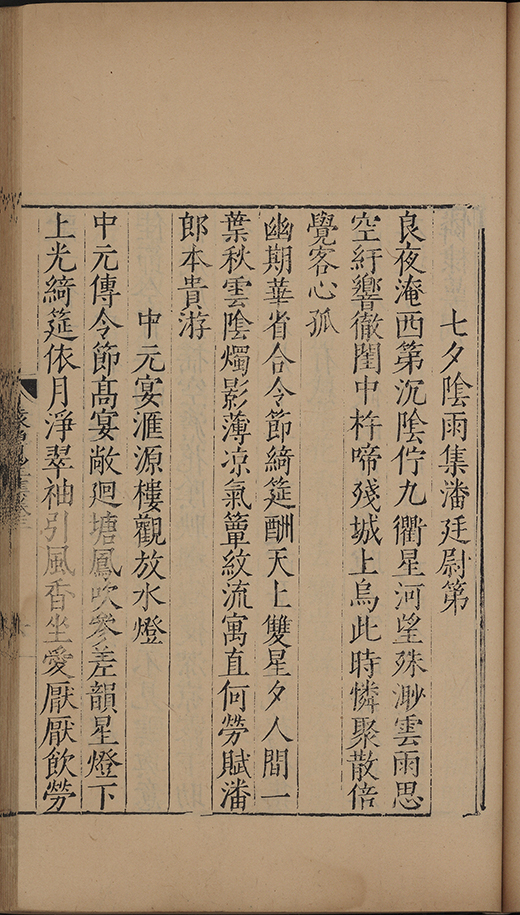 七夕陰雨集潘廷尉第
良夜淹西第沉陰佇九衢星河望殊渺雲雨思
空紆響徹閨中杵啼殘城上烏此時憐聚散倍
覺客心孤
幽期華省合令節綺筵酬天上雙星夕人間一
葉秋雲陰燭影薄凉氣簟紋流寓直何勞賦潘
郎本貴游
中元宴滙源樓觀放水燈
中元傳令節高宴敞迴塘鳳吹參差韻星燈下
上光綺筵依月淨翠袖引風香坐愛厭厭飲勞